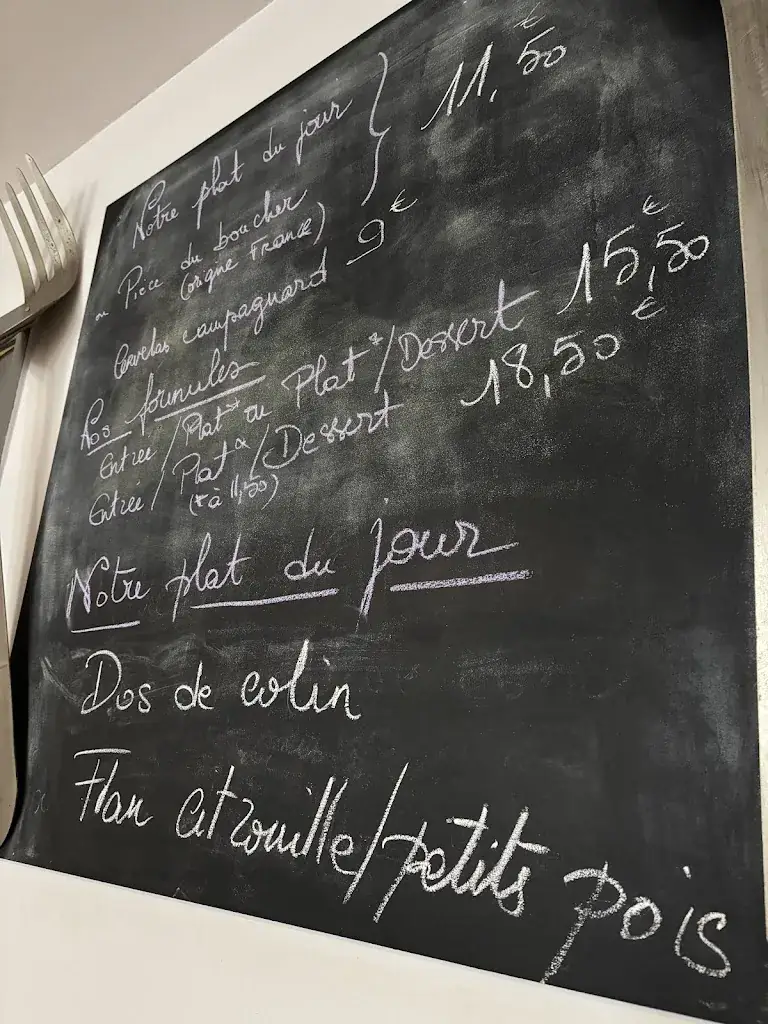 Notre plat du jour } 11,50 €
ou Pièce du boucher
(origine France)
Cervelas campagnard 9 €
Nos formules
Entrée / Plat* ou Plat* / Dessert 15,50 €
Entrée / Plat* / Dessert 18,50 €
(* à 11,50)
Notre plat du jour
Dos de colin
Flan citrouille/petits pois